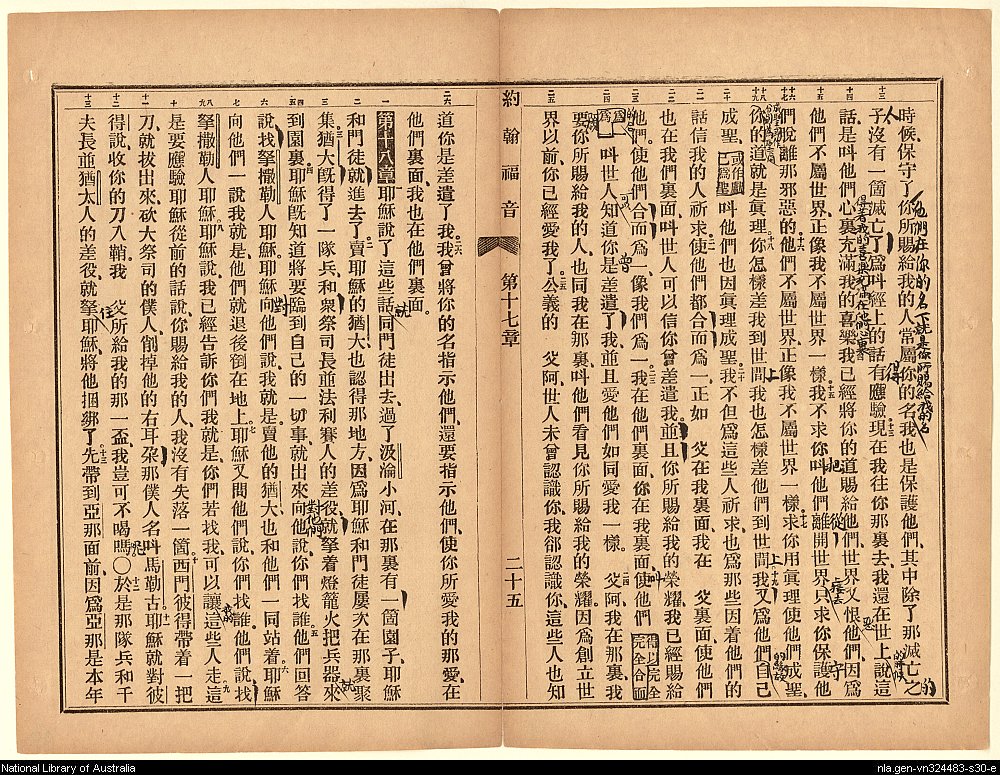 時候、保守了你所賜給我的人、常屬你的名、我也是保護他們、其中除了那滅亡之
子、沒有一箇滅亡了、爲叫經上的話有應驗。現在我往你那裏去、我還在世上說這
話、是叫他們心裏充滿我的喜樂。我已經將你的道賜給他們、世界又恨他們、因爲
他們不屬世界、正像我不屬世界一樣。我不求你叫他們離開世界、只求你保護他
們脫離那邪惡的。他們不屬世界、正像我不屬世界一樣。求你用眞理使他們成聖、
你的道就是眞理。你怎樣差我到世間、我也怎樣差他們到世間。我又爲他們自己
成聖、叫他們也因眞理成聖。我不但爲這些人祈求、也爲那些因着他們的
話信我的人祈求、使他們都合而爲一、正如 父在我裏面、我在 父裏面、使他們
也在我們裏面、叫世人可以信你曾差遣我。並且你所賜給我的榮耀、我已經賜給
他們、使他們合而爲一、像我們爲一。我在他們裏面、你在我裏面、使他們
叫世人知道你是差遣了我、並且愛他們如同愛我一樣。 父阿、我在那裏、我
要你所賜給我的人、也同我在那裏、叫他們看見你所賜給我的榮耀、因爲創立世
界以前、你已經愛我了。公義的 父阿、世人未曾認識你、我卻認識你、這些人也知
約翰福音 第十七章 二十五
道你是差遣了我。我曾將你的名指示他們、還要指示他們、使你所愛我的那愛、在
他們裏面、我也在他們裏面。
第十八章 耶穌說了這些話、同門徒出去、過了汲淪小河、在那裏有一箇園子、耶穌
和門徒就進去了。賣耶穌的猶大也認得那地方、因爲耶穌和門徒屢次在那裏聚
集。猶大旣得了一隊兵、和衆祭司長並法利賽人的差役、就拏着燈籠火把兵器來
到園裏。耶穌旣知道將要臨到自己的一切事、就出來向他說、你們找誰。他們回答
說、找拏撒勒人耶穌。耶穌向他們說、我就是、賣他的猶大也和他們一同站着。耶穌
向他們一說我就是、他們就退後倒在地上。耶穌又問他們說、你們找誰、他們說、找
拏撒勒人耶穌。耶穌說、我已經告訴你們我就是、你們若找我、可以讓這些人走這
是要應驗耶穌從前的話、說你賜給我的人、我沒有失落一箇。西門彼得帶着一把
刀、就拔出來、砍大祭司的僕人、削掉他的右耳朶、那僕人名叫馬勒古。耶穌就對彼
得說、收你的刀入鞘、我 父所給我的那一盃、我豈可不喝嗎。○於是那隊兵和千
夫長、並猶太人的差役、就拏耶穌、將他捆綁了。先帶到亞那面前、因爲亞那是本年